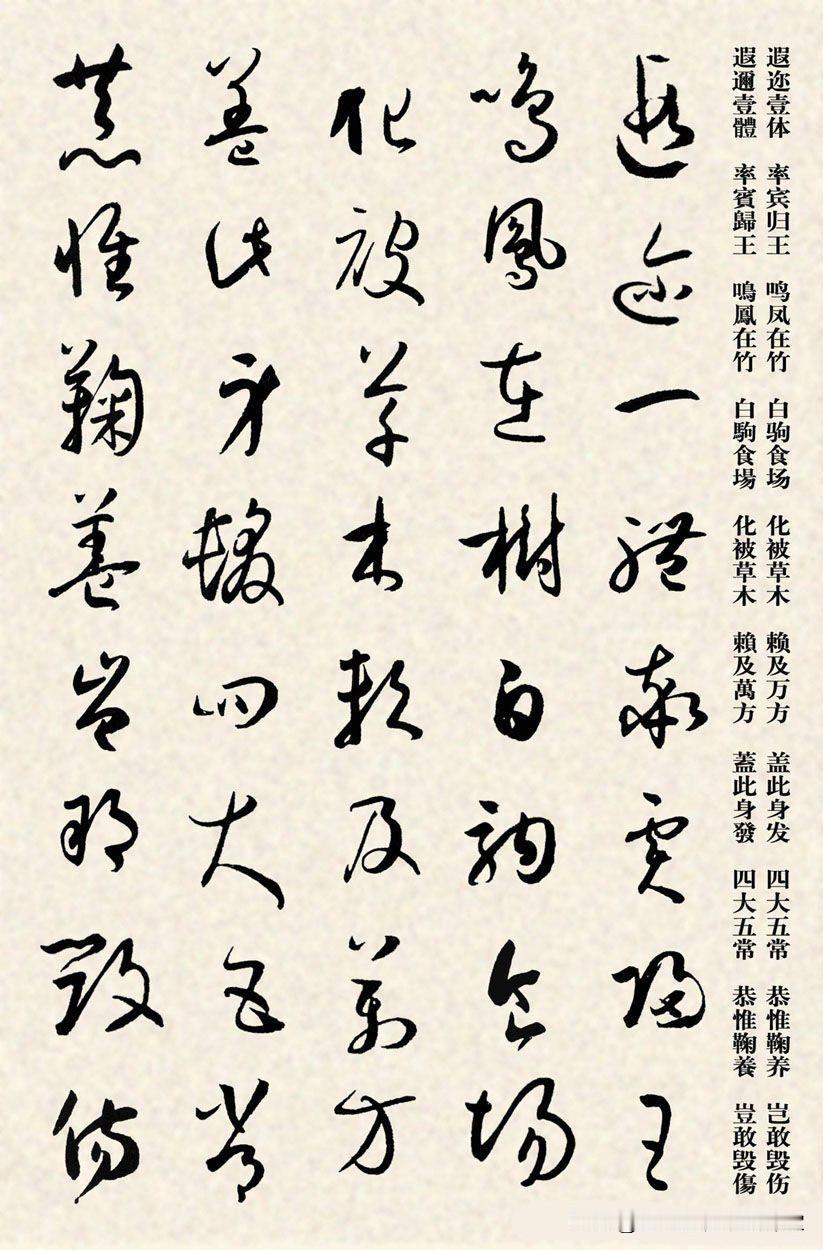 遐迩壹体 率宾归王 鸣凤在竹 白驹食场 化被草木 赖及万方 盖此身发 四大五常 恭惟鞠养 岂敢毁伤
遐邇壹體 率賓歸王 鳴鳳在竹 白駒食場 化被草木 賴及萬方 蓋此身發 四大五常 恭惟鞠養 豈敢毀傷
遐迩一體率賓歸王
鳴鳳在樹白駒食場
化被草木賴及萬方
蓋此身髮四大五常
恭惟鞠養豈敢毀傷